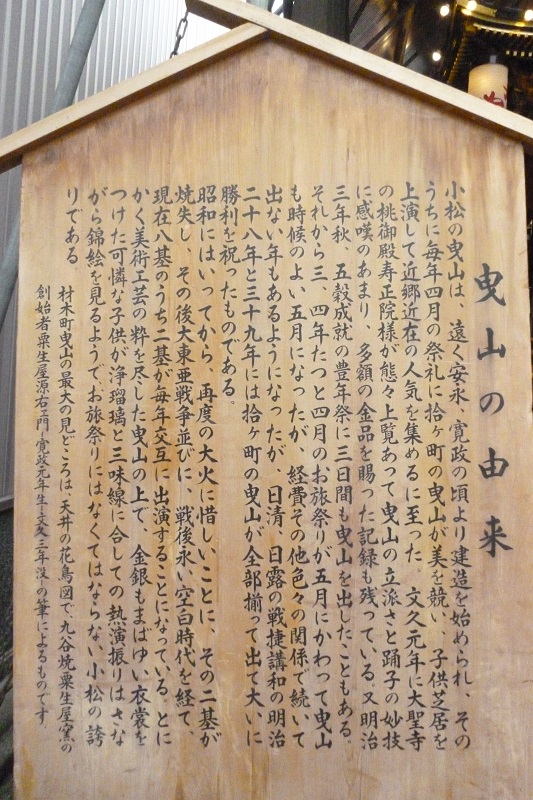 曳山の由来
小松の曳山は、遠く安永、寛政の頃より建造を始められ、その
うちに毎年四月の祭礼に拾ヶ町の曳山が美を競い、子供芝居を
上演して近郷近在の人気を集めるに至った。文久元年に大聖寺
の桃御殿寿正院様が態々上覧あって曳山の立派さと踊子の妙技
に感嘆のあまり、多額の金品を賜った記録も残っている。又明治
三年秋、五穀成就の豊年祭に三日間も曳山を出したこともある。
それから三、四年たつと四月のお旅祭りが五月にかわって曳山
も時候のよい五月になったが、経費その他色々の関係で続いて
出ない年もあるようになったが、日清、日露の戦捷講和の明治
二十八年と三十九年には拾ヶ町の曳山が全部揃って出て大いに
勝利を祝ったものである。
昭和にはいってから、再度の大火に惜しいことに、その二基が
焼失し、その後大東亜戦争並びに、戦後永い空白時代を経て、
現在八基のうち二基が毎年交互に出演することになっている。とに
かく美術工芸の粋を尽した曳山の上で、金銀もまばゆい衣裳を
つけた可憐な子供が浄瑠璃と三味線に合しての熱演振りは、さな
がら錦絵を見るようで、お旅祭りにはなくてはならない小松の誇
りである。
材木町曳山の最大の見どころは、天井の花鳥図で、九谷焼粟生屋窯の
創始者粟生屋源右エ門ー寛政元年生ー文久三年没ーの筆によるものです。